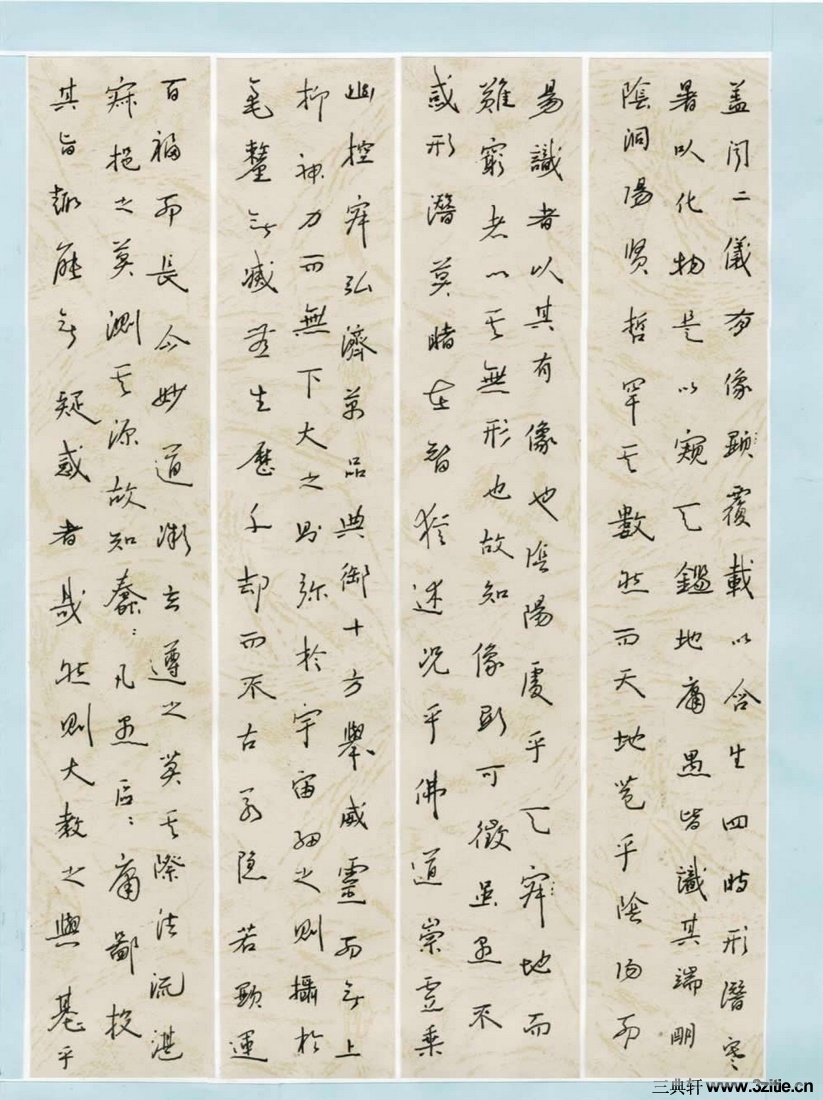 盖闻二儀有像顯覆載以含生四時形潛寒
暑以化物是以窺天鑑地庸愚皆識其端明
陰洞陽賢哲罕其數然而天地苞乎陰陽而
易識者以其有像也陰陽處乎天地而
難窮者以其無形也故知像顯可徵雖愚不
惑形潛莫睹在智猶迷况乎佛道崇虚乘
幽控寂弘濟萬品典御十方舉威靈而無上
抑神力而無下大之則弥於宇宙細之則攝於
毫釐無滅無生歷千却而不古若隐若顯運
百福而長今妙道凝玄遵之莫其際法流湛
寂挹之莫測其源故知蠢:凡愚区:庸鄙投
其旨趣能無疑惑者哉然則大教之興基乎
三典轩 www.3zitie.cn